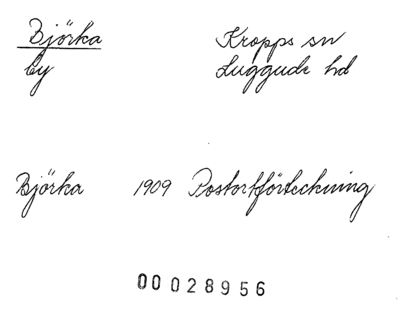 Björka Kropps sn
by Luggude hd
Björka 1909 Postortförteckning
00028956